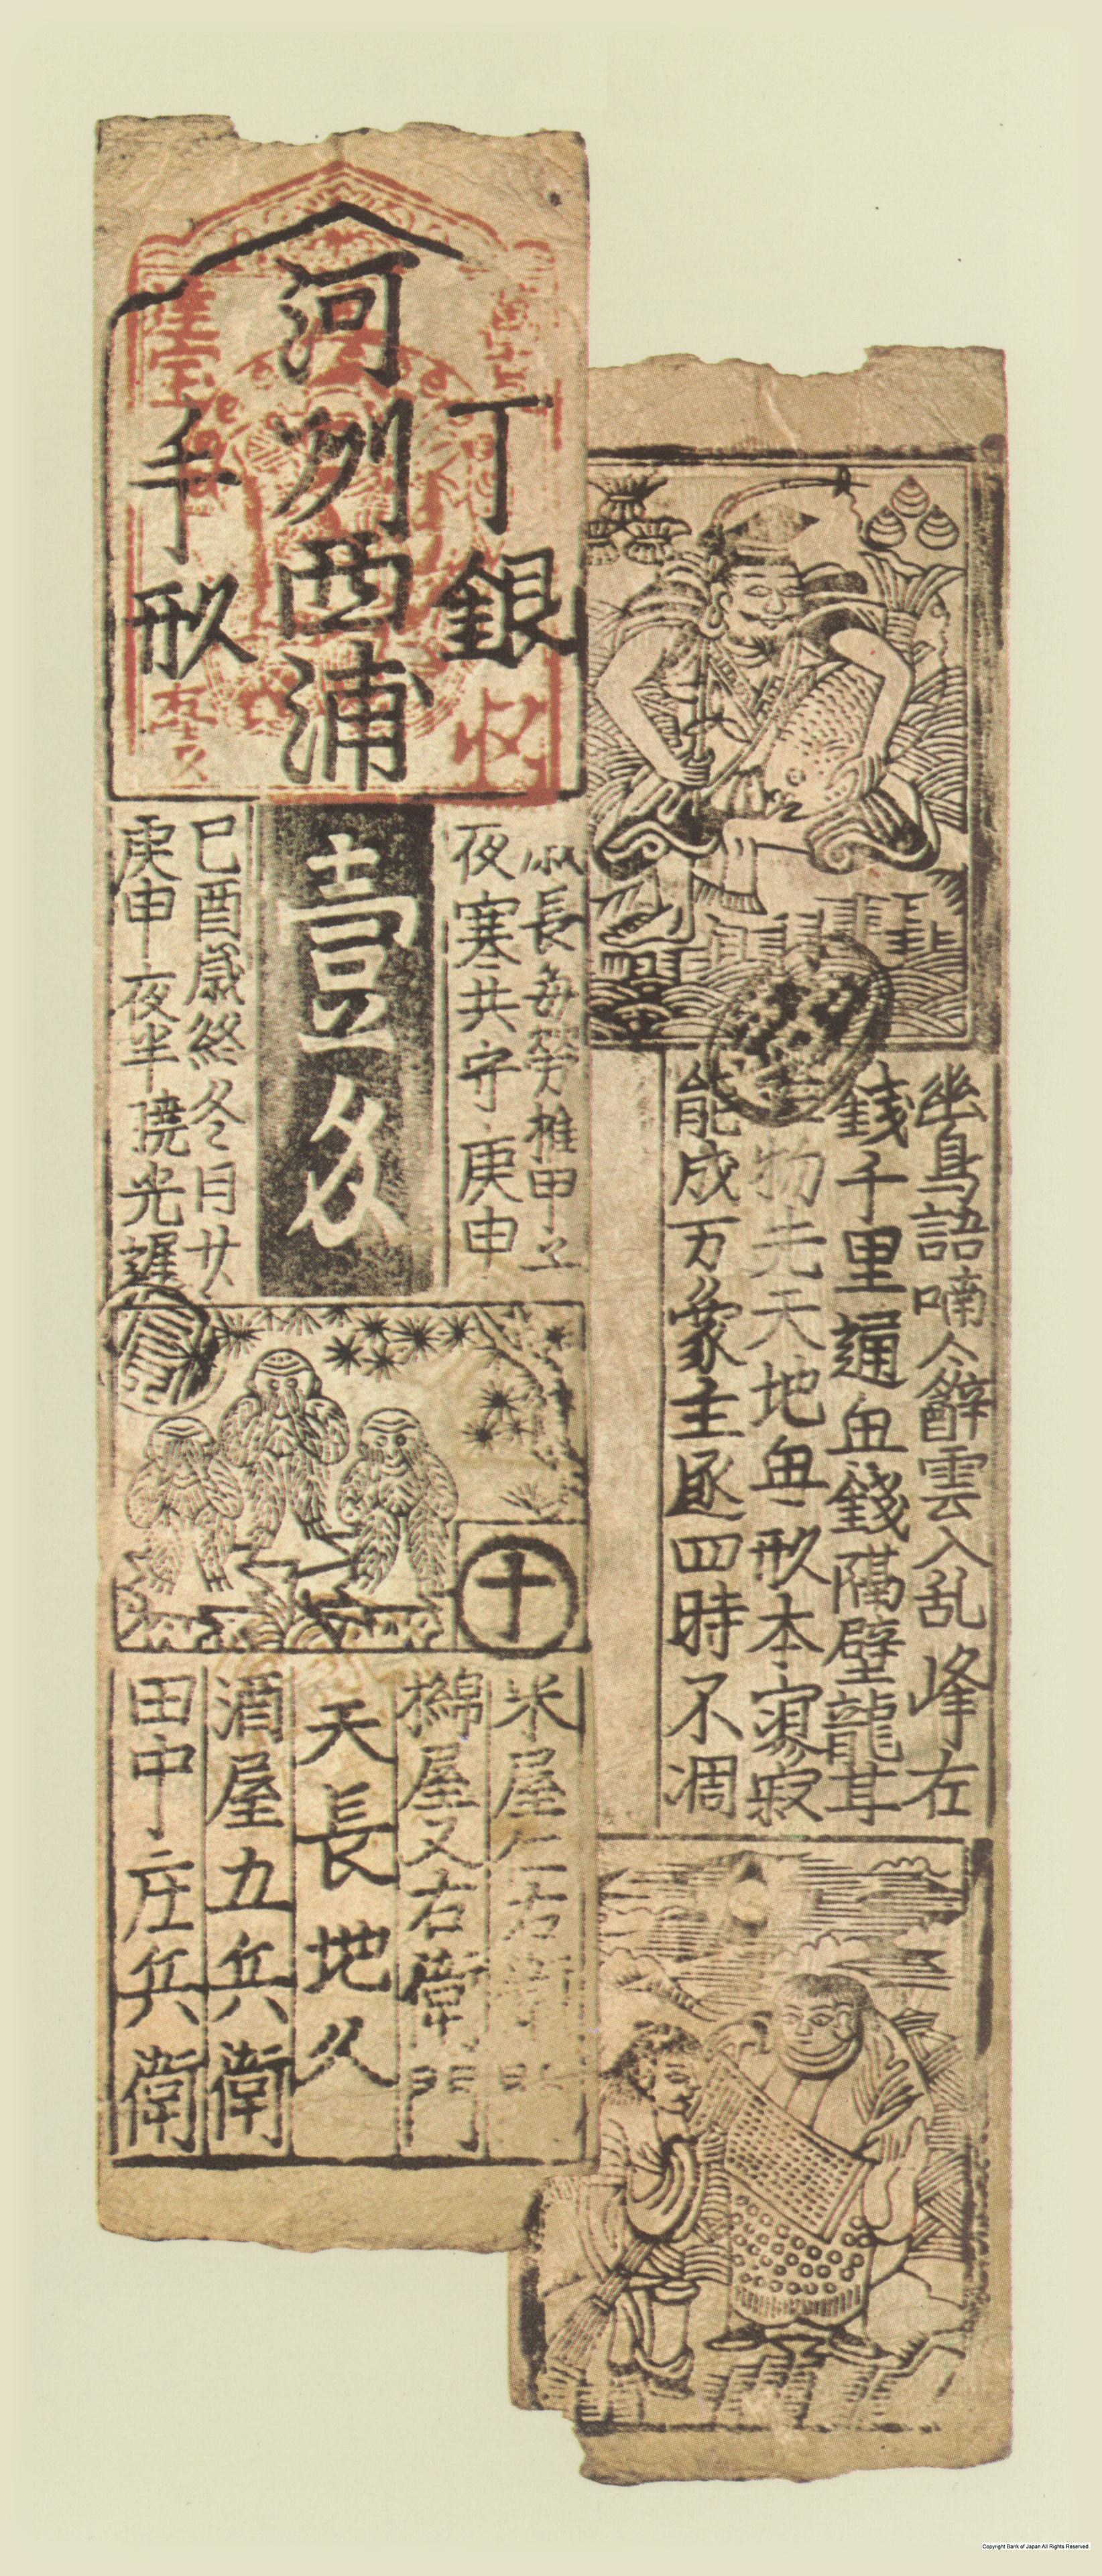 丁銀
河州西浦
手形
壹匁
夜寒共守庚申
己酉歳終冬月廿
庚申夜半暁光遅
十
米屋仁右衛門
綿屋又右衛門
天長地久
酒屋五兵衛
田中庄兵衛
幽鳥語喃々辭雲入乱峰左
銭千里通無銭隔壁龍耳
物先天地無形本寂寥
能成万象主逐四時不凋
Copyright Bank of Japan All Rights Reserved